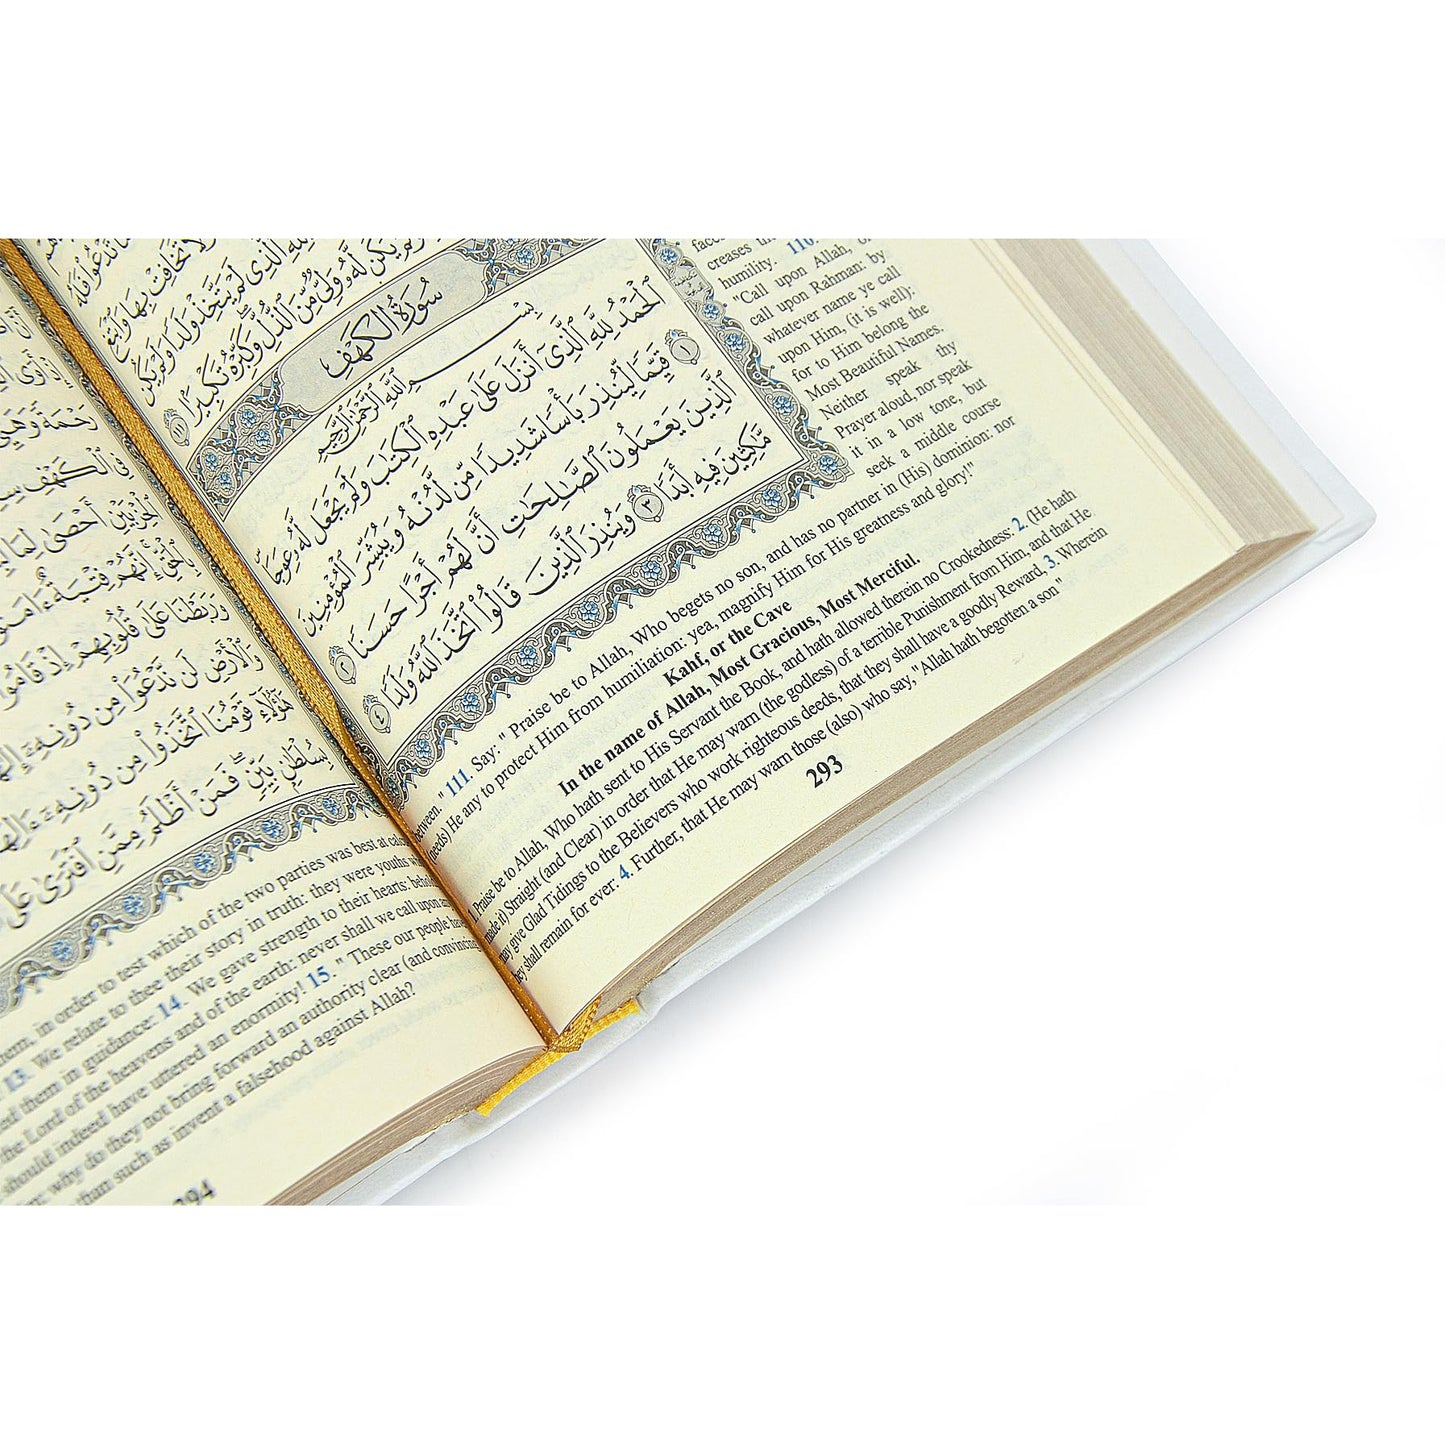 تَدْعُوا۟ فَلَهُ
وَلَا تُخَافِتْ بِهَا وَٱبْتَغِ
لِلَّهِ ٱلَّذِى لَمْ يَتَّخِذْ وَلَدًا وَلَمْ يَكُن
وَلَمْ يَكُن لَّهُۥ وَلِىٌّ مِّنَ ٱلذُّلِّ وَكَبِّرْهُ تَكْبِيرًۢا ١١١
سُورَةُ الكَهْفِ
بِسْمِ ٱللَّهِ ٱلرَّحْمَـٰنِ ٱلرَّحِيمِ
ٱلْحَمْدُ لِلَّهِ ٱلَّذِىٓ أَنزَلَ عَلَىٰ عَبْدِهِ ٱلْكِتَـٰبَ وَلَمْ يَجْعَل لَّهُۥ عِوَجَا
١ قَيِّمًا لِّيُنذِرَ بَأْسًا شَدِيدًا مِّن لَّدُنْهُ وَيُبَشِّرَ ٱلْمُؤْمِنِينَ
ٱلَّذِينَ يَعْمَلُونَ ٱلصَّـٰلِحَـٰتِ أَنَّ لَهُمْ أَجْرًا حَسَنًا ٢
مَّـٰكِثِينَ فِيهِ أَبَدًا ٣ وَيُنذِرَ ٱلَّذِينَ قَالُوا۟ ٱتَّخَذَ ٱللَّهُ وَلَدًا ٤
creases
humility. 110.
"Call upon Allah, or
call upon Rahman: by
whatever name ye call
upon Him, (it is well):
for to Him belong the
Most Beautiful Names.
Neither speak thy
Prayer aloud, nor speak
it in a low tone, but
seek a middle course
between." 111. Say: " Praise be to Allah, Who begets no son, and has no partner in (His) dominion: nor
(needs) He any to protect Him from humiliation: yea, magnify Him for His greatness and glory!"
Kahf, or the Cave
In the name of Allah, Most Gracious, Most Merciful.
1. Praise be to Allah, Who hath sent to His Servant the Book, and hath allowed therein no Crookedness: 2. (He hath
made it) Straight (and Clear) in order that He may warn (the godless) of a terrible Punishment from Him, and that He
may give Glad Tidings to the Believers who work righteous deeds, that they shall have a goodly Reward, 3. Wherein
they shall remain for ever: 4. Further, that He may warn those (also) who say, "Allah hath begotten a son"
293
إِذْ أَوَى
رَحْمَةً وَهَيِّئْ
فِى ٱلْكَهْفِ
ٱلْحِزْبَيْنِ أَحْصَىٰ لِمَا
بِٱلْحَقِّ إِنَّهُمْ فِتْيَةٌ ءَامَنُوا۟
وَرَبَطْنَا عَلَىٰ قُلُوبِهِمْ إِذْ قَامُوا۟
وَٱلْأَرْضِ لَن نَّدْعُوَا۟ مِن دُونِهِۦٓ
هَـٰٓؤُلَآءِ قَوْمُنَا ٱتَّخَذُوا۟ مِن دُونِهِۦٓ ءَالِهَةً
بِسُلْطَـٰنٍۭ بَيِّنٍ فَمَنْ أَظْلَمُ مِمَّنِ ٱفْتَرَىٰ عَلَى
them, in order to test which of the two parties was best at
13. We relate to thee their story in truth: they were youths
them in guidance: 14. We gave strength to their hearts:
the Lord of the heavens and of the earth: never shall we call upon
should indeed have uttered an enormity! 15. " These our people have
why do they not bring forward an authority clear (and convincing
than such as invent a falsehood against Allah?
294